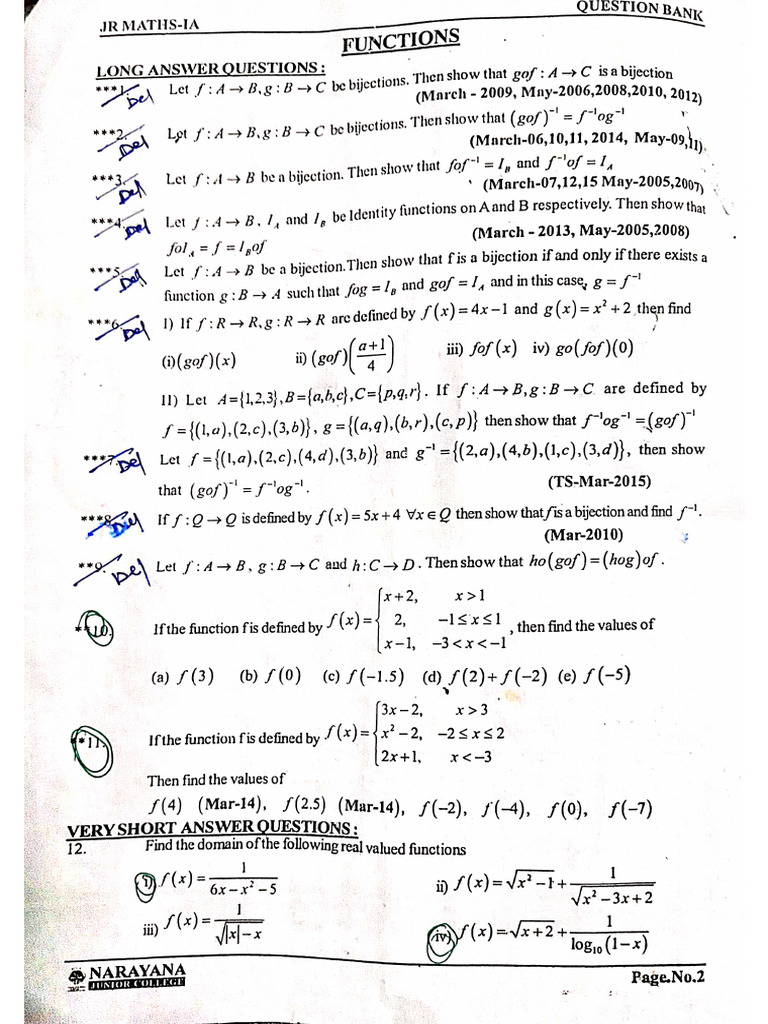 JR MATHS-IA QUESTION BANK
FUNCTIONS
LONG ANSWER QUESTIONS :
***1. Del Let f : A → B, g : B → C be bijections. Then show that gof : A → C is a bijection
(March - 2009, May-2006,2008,2010, 2012)
***2. Del Let f : A → B, g : B → C be bijections. Then show that (gof)⁻¹ = f⁻¹og⁻¹
(March-06,10,11, 2014, May-09,11)
***3. Del Let f : A → B be a bijection. Then show that fof⁻¹ = I_B and f⁻¹of = I_A
(March-07,12,15 May-2005,2007)
***4. Del Let f : A → B, I_A and I_B be Identity functions on A and B respectively. Then show that
foI_A = f = I_Bof (March - 2013, May-2005,2008)
***5. Del Let f : A → B be a bijection.Then show that f is a bijection if and only if there exists a
function g : B → A such that fog = I_B and gof = I_A and in this case, g = f⁻¹
***6. Del I) If f : R → R, g : R → R are defined by f(x) = 4x − 1 and g(x) = x² + 2 then find
(i) (gof)(x) ii) (gof)((a+1)/4) iii) fof(x) iv) go(fof)(0)
II) Let A={1,2,3}, B={a,b,c}, C={p,q,r}. If f : A → B, g : B → C are defined by
f = {(1,a),(2,c),(3,b)}, g = {(a,q),(b,r),(c,p)} then show that f⁻¹og⁻¹ = (gof)⁻¹
***7. Del Let f = {(1,a),(2,c),(4,d),(3,b)} and g⁻¹ = {(2,a),(4,b),(1,c),(3,d)}, then show
that (gof)⁻¹ = f⁻¹og⁻¹. (TS-Mar-2015)
***8. Del If f : Q → Q is defined by f(x) = 5x + 4 ∀x ∈ Q then show that f is a bijection and find f⁻¹.
(Mar-2010)
**9. Del Let f : A → B, g : B → C and h : C → D. Then show that ho(gof) = (hog)of.
**10. If the function f is defined by f(x) = { x + 2, x > 1; 2, −1 ≤ x ≤ 1; x − 1, −3 < x < −1 , then find the values of
(a) f(3) (b) f(0) (c) f(−1.5) (d) f(2) + f(−2) (e) f(−5)
**11. If the function f is defined by f(x) = { 3x − 2, x > 3; x² − 2, −2 ≤ x ≤ 2; 2x + 1, x < −3
Then find the values of
f(4) (Mar-14), f(2.5) (Mar-14), f(−2), f(−4), f(0), f(−7)
VERY SHORT ANSWER QUESTIONS :
12. Find the domain of the following real valued functions
i) f(x) = 1/(6x − x² − 5) ii) f(x) = √(x² − 1) + 1/√(x² − 3x + 2)
iii) f(x) = 1/√(|x| − x) iv) f(x) = √(x + 2) + 1/log₁₀(1 − x)
NARAYANA
JUNIOR COLLEGE
Page.No.2